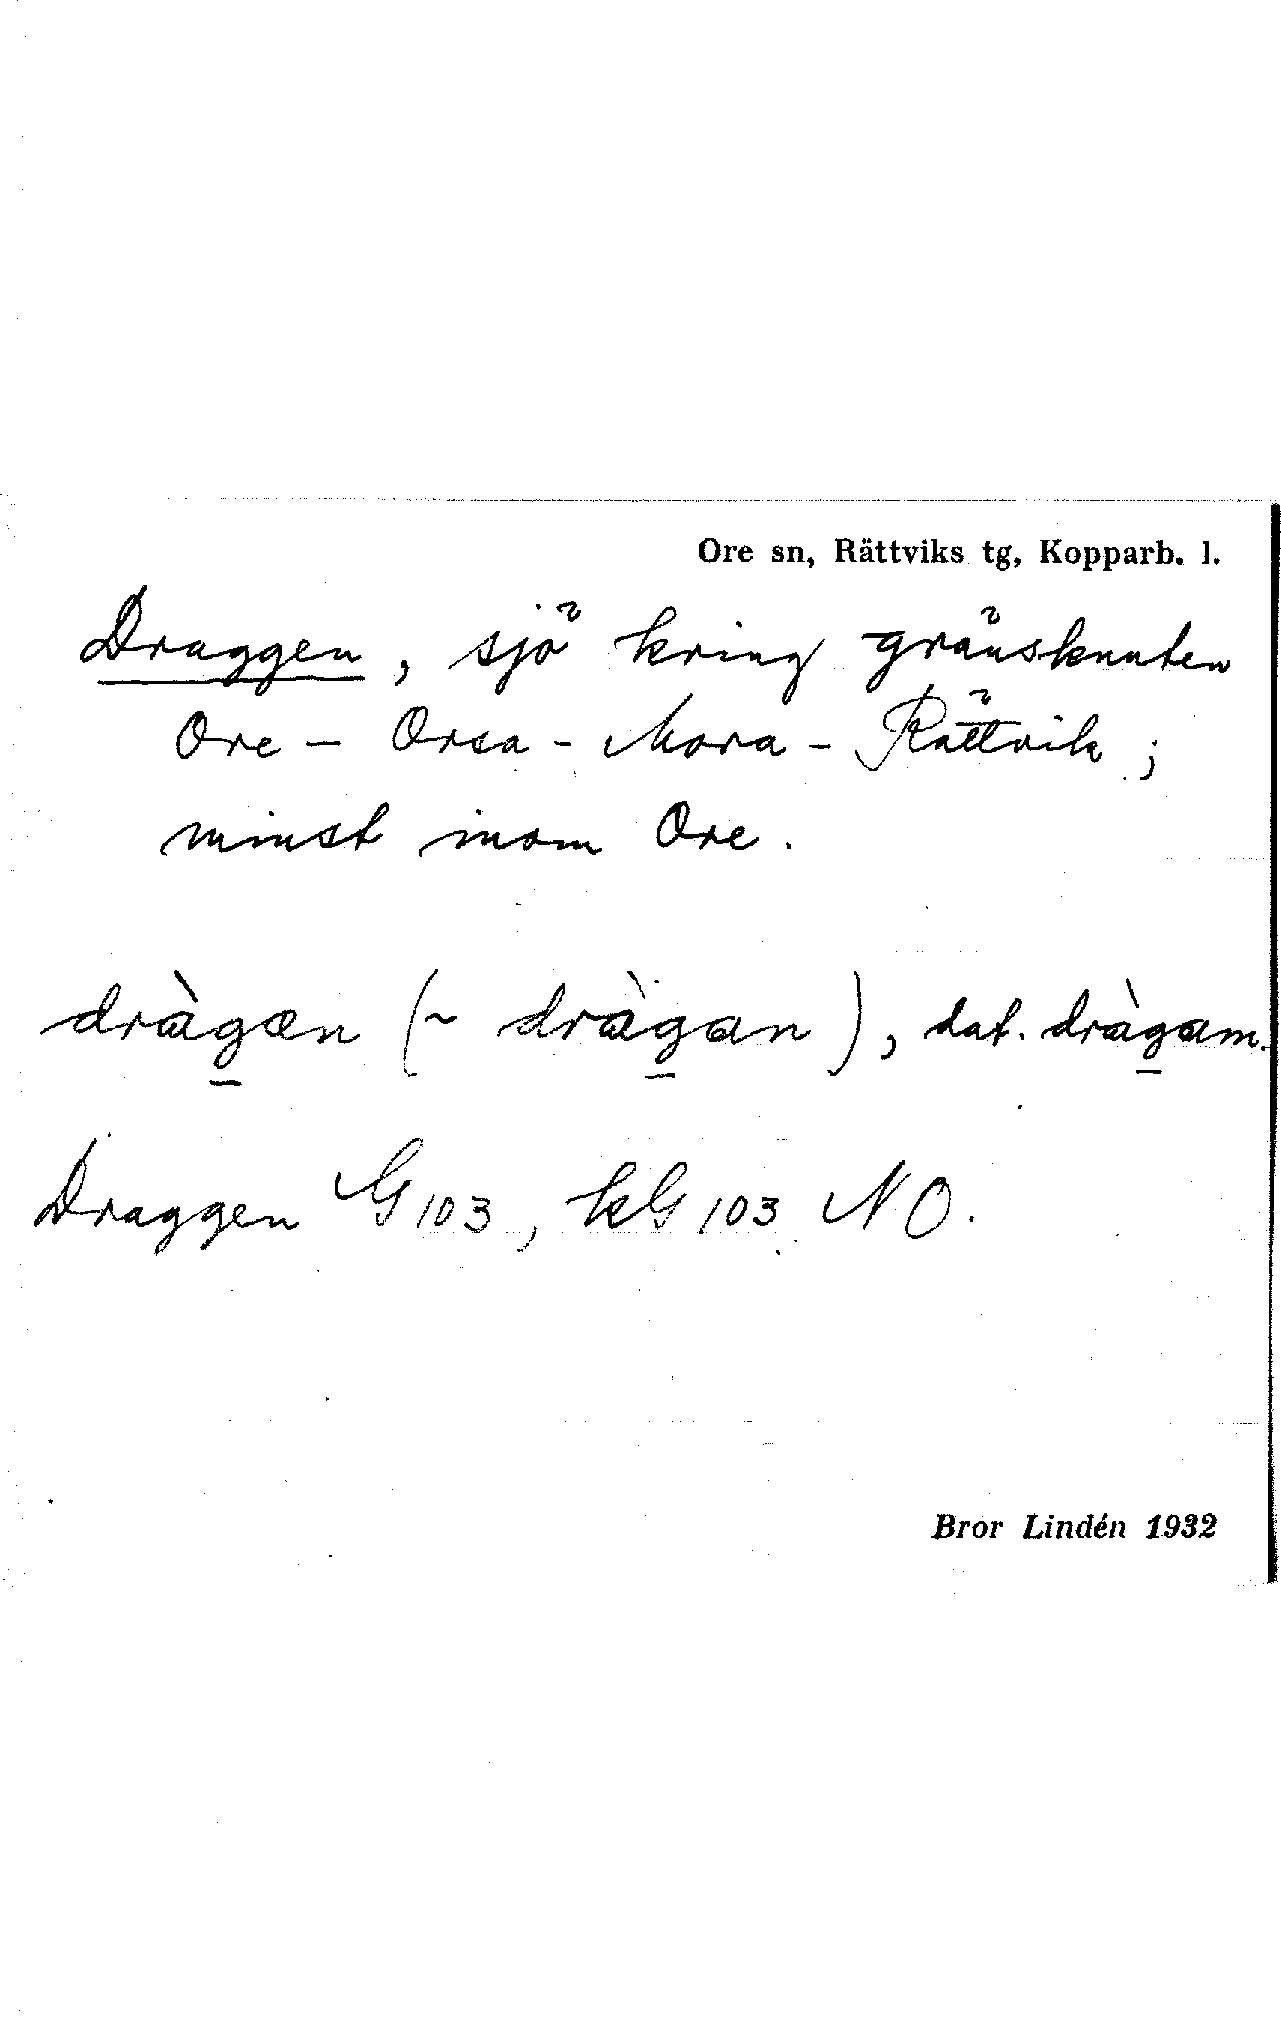 Ore sn, Rättviks tg, Kopparb. l.
Draggen, sjö kring gränsknuten
Ore – Orsa – Mora – Rättvik;
minst inom Ore.
dràg̱æn (~ dràg̱an), dat. dràg̱am.
Draggen G 103, kG 103 NO.
Bror Lindén 1932